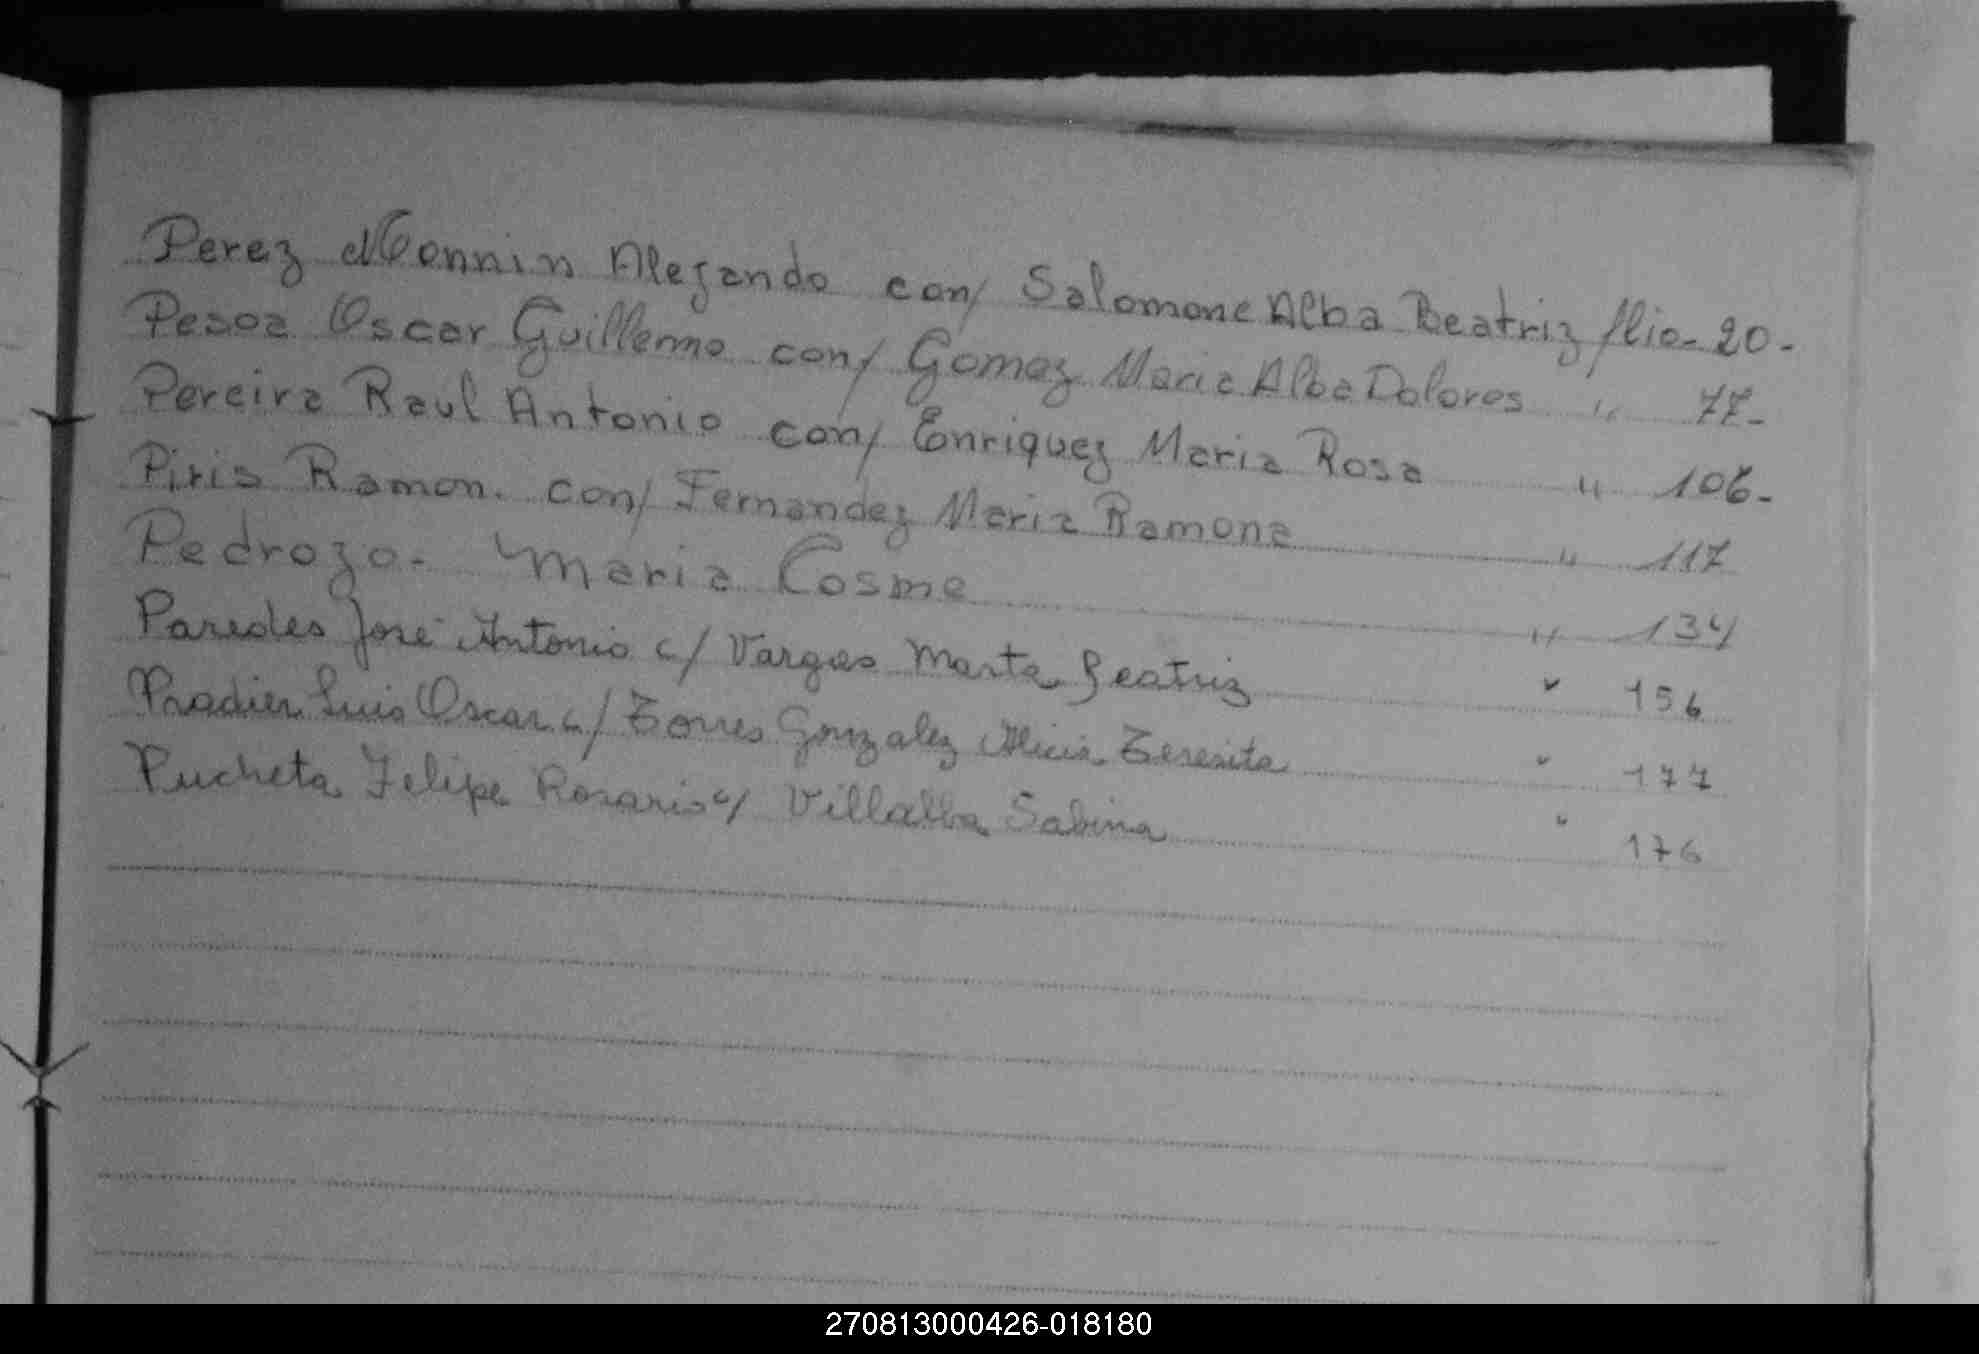 Perez Monnin Alejando con/ Salomone Alba Beatriz flio- 20-
Pesoa Oscar Guillermo con/ Gomez Maria Alba Dolores " 77-
Pereira Raul Antonio con/ Enriquez Maria Rosa " 106-
Piris Ramon. con/ Fernandez Maria Ramona " 117
Pedrozo- Maria Cosme " 134
Paredes José Antonio c/ Vargas Marta Beatriz " 156
Pradier Luis Oscar c/ Torres Gonzalez Alicia Teresita " 177
Pucheta Felipe Rosario c/ Villalba Sabina " 176
270813000426-018180